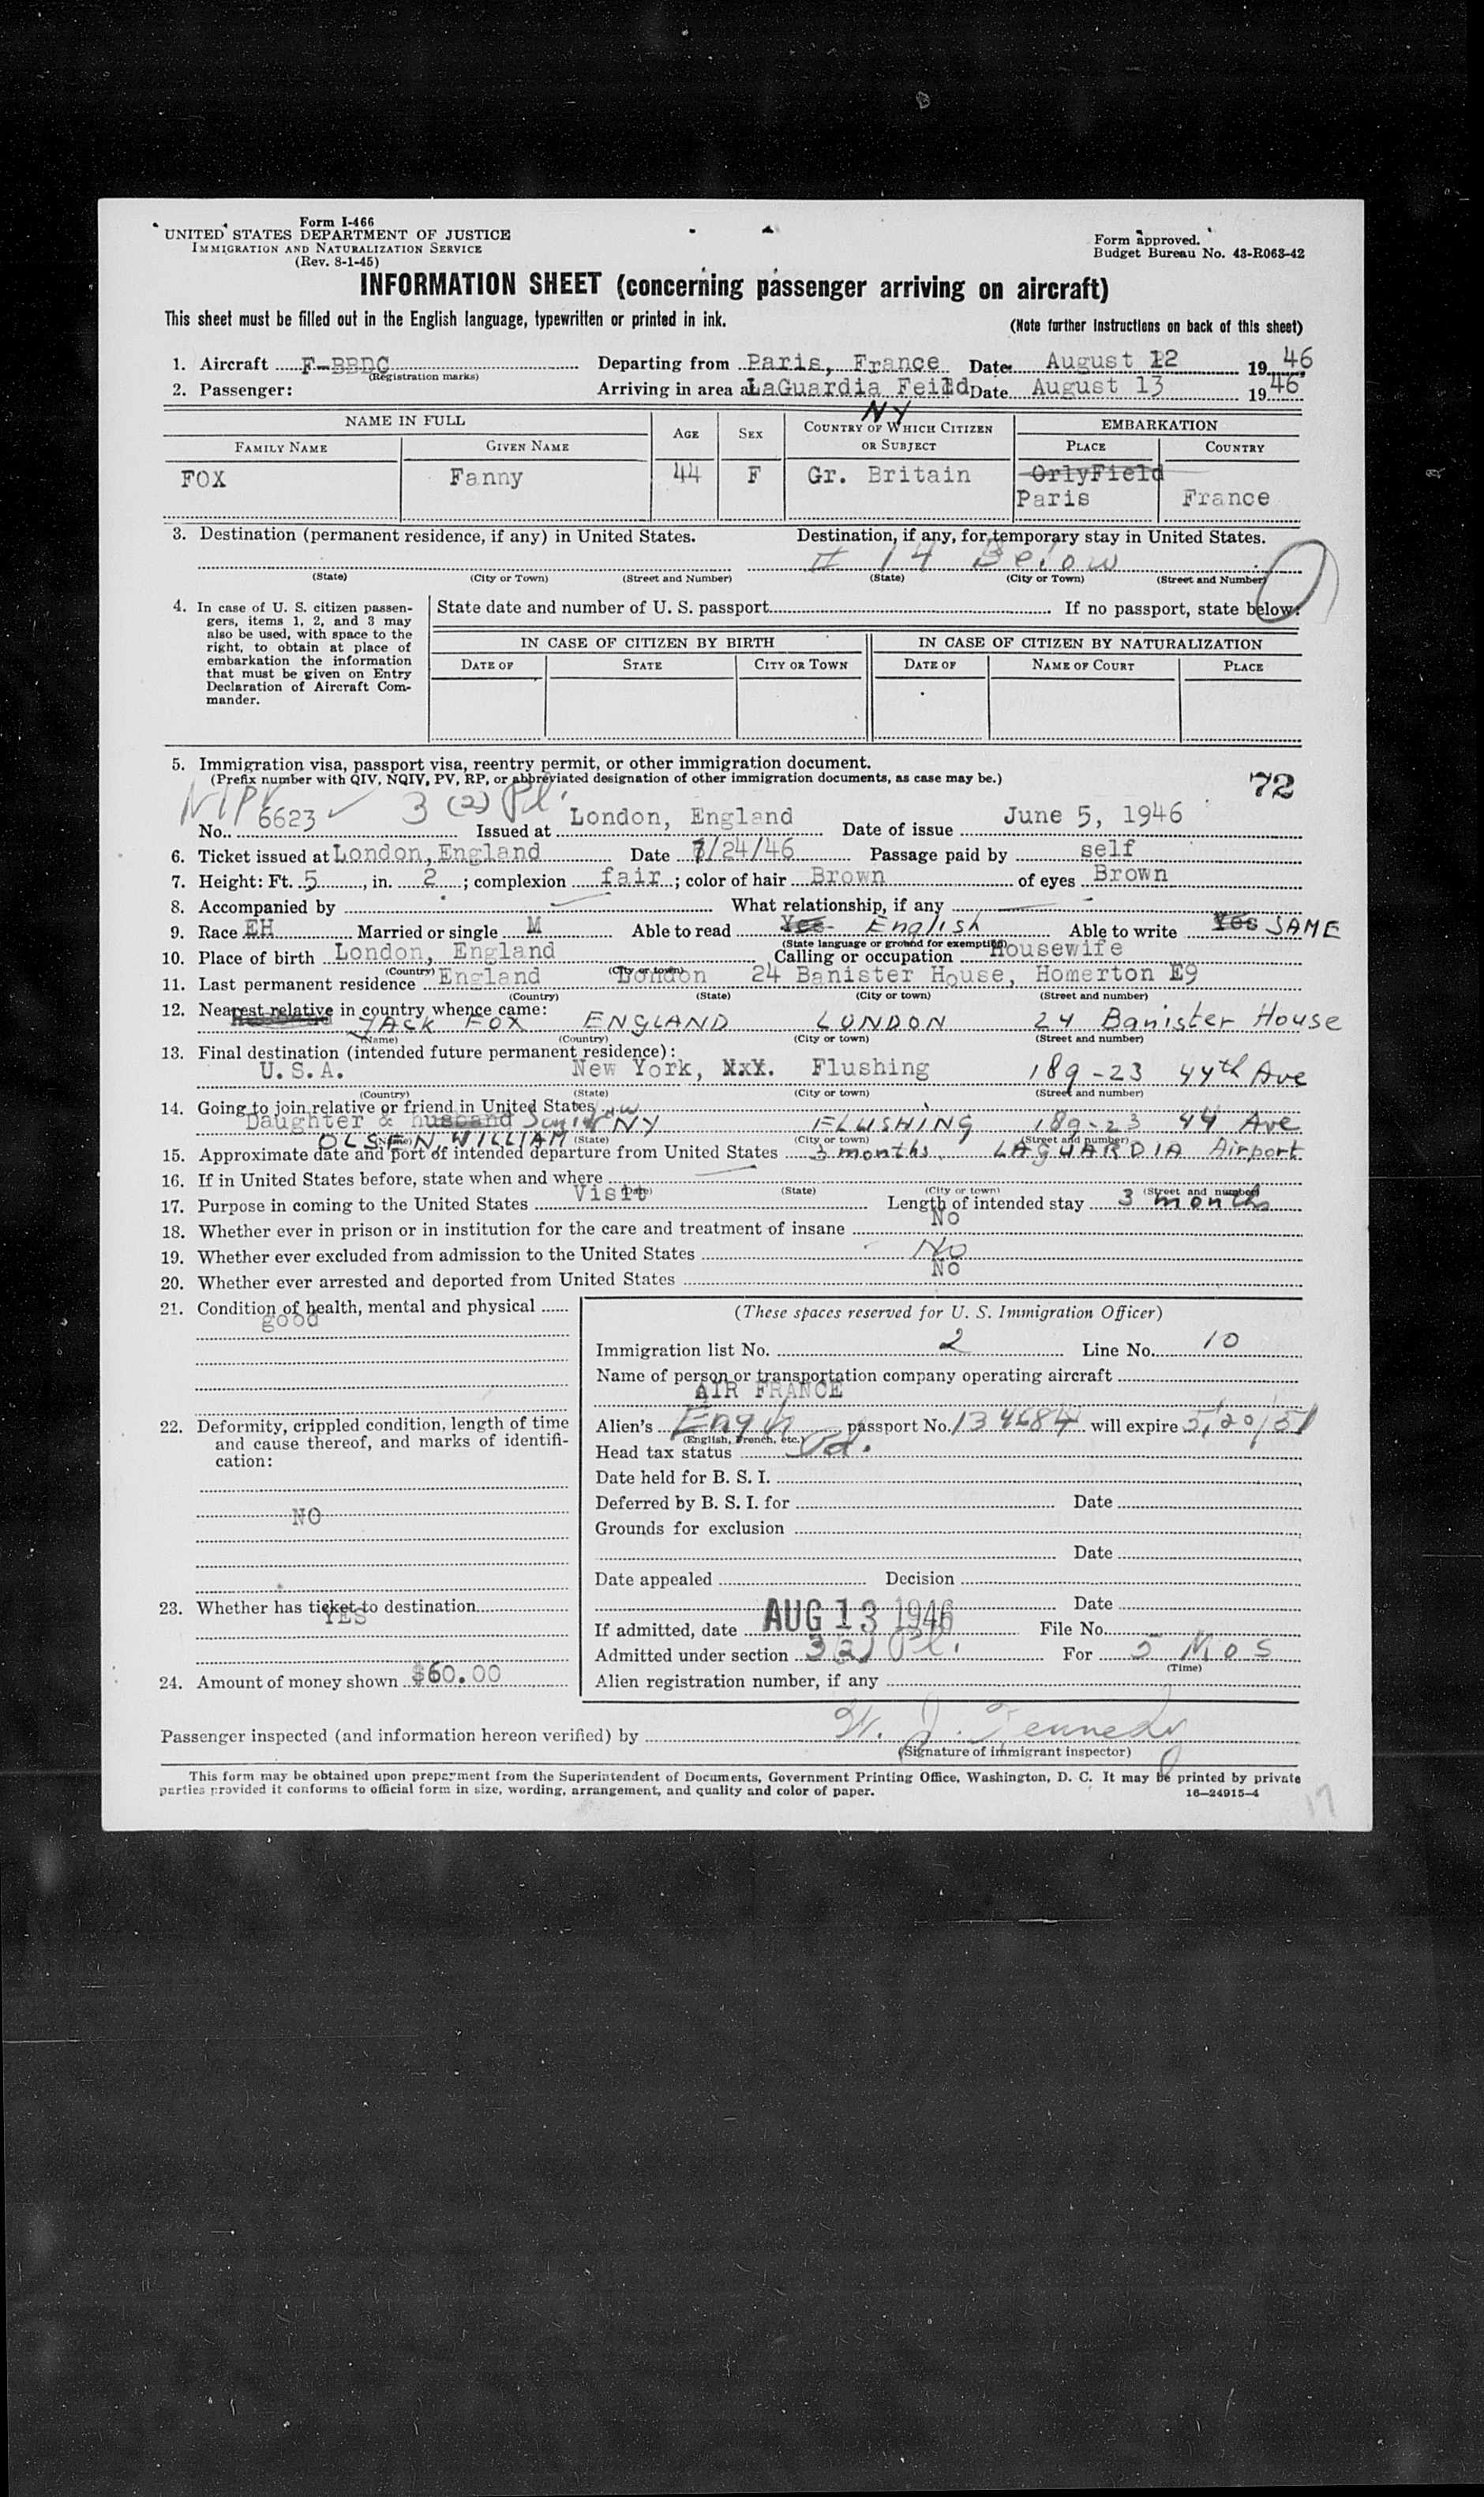 Form I-466
UNITED STATES DEPARTMENT OF JUSTICE
IMMIGRATION AND NATURALIZATION SERVICE
(Rev. 8-1-45)
Form approved.
Budget Bureau No. 43-R063-42
INFORMATION SHEET (concerning passenger arriving on aircraft)
This sheet must be filled out in the English language, typewritten or printed in ink.
(Note further instructions on back of this sheet)
1. Aircraft F-BBDC Departing from Paris, France Date August 12 19 46
(Registration marks)
2. Passenger: Arriving in area at LaGuardia Feild Date August 13 19 46
NY
NAME IN FULL AGE SEX COUNTRY OF WHICH CITIZEN OR SUBJECT EMBARKATION
FAMILY NAME GIVEN NAME PLACE COUNTRY
FOX Fanny 44 F Gr. Britain OrlyField
Paris France
3. Destination (permanent residence, if any) in United States. Destination, if any, for temporary stay in United States.
# 14 Below
(State) (City or Town) (Street and Number) (State) (City or Town) (Street and Number)
4. In case of U. S. citizen passengers, items 1, 2, and 3 may also be used, with space to the right, to obtain at place of embarkation the information that must be given on Entry Declaration of Aircraft Commander.
State date and number of U. S. passport If no passport, state below:
IN CASE OF CITIZEN BY BIRTH IN CASE OF CITIZEN BY NATURALIZATION
DATE OF STATE CITY OR TOWN DATE OF NAME OF COURT PLACE
5. Immigration visa, passport visa, reentry permit, or other immigration document.
(Prefix number with QIV, NQIV, PV, RP, or abbreviated designation of other immigration documents, as case may be.)
72
3 (2) Pl.
No. 6623 Issued at London, England Date of issue June 5, 1946
6. Ticket issued at London, England Date 7/24/46 Passage paid by self
7. Height: Ft. 5, in. 2; complexion fair; color of hair Brown of eyes Brown
8. Accompanied by What relationship, if any
9. Race EH Married or single M Able to read Yes English Able to write Yes SAME
(State language or ground for exemption)
10. Place of birth London, England Calling or occupation Housewife
(Country) (City or town)
11. Last permanent residence England London 24 Banister House, Homerton E9
(Country) (State) (City or town) (Street and number)
12. Nearest relative in country whence came:
JACK FOX ENGLAND LONDON 24 Banister House
(Name) (Country) (City or town) (Street and number)
13. Final destination (intended future permanent residence):
U.S.A. New York, NxY. Flushing 189-23 44th Ave
(Country) (State) (City or town) (Street and number)
14. Going to join relative or friend in United States
Daughter & husband Son in law NY FLUSHING 189-23 44 Ave
OLSEN, WILLIAM
(Name) (State) (City or town) (Street and number)
15. Approximate date and port of intended departure from United States 3 months. LAGUARDIA Airport
16. If in United States before, state when and where
(Date) (State) (City or town) (Street and number)
17. Purpose in coming to the United States Visit Length of intended stay 3 months
18. Whether ever in prison or in institution for the care and treatment of insane No
19. Whether ever excluded from admission to the United States No
20. Whether ever arrested and deported from United States No
21. Condition of health, mental and physical
good
22. Deformity, crippled condition, length of time and cause thereof, and marks of identification:
NO
23. Whether has ticket to destination
YES
24. Amount of money shown $60.00
(These spaces reserved for U. S. Immigration Officer)
Immigration list No. 2 Line No. 10
Name of person or transportation company operating aircraft
AIR FRANCE
Alien's passport No. 134684 will expire 5/20/51
(English, French, etc.)
Head tax status
Date held for B. S. I.
Deferred by B. S. I. for Date
Grounds for exclusion
Date
Date appealed Decision
Date
If admitted, date AUG 13 1946 File No.
Admitted under section 3(2) Pl. For 5 Mos
(Time)
Alien registration number, if any
Passenger inspected (and information hereon verified) by W. J. Kennedy
(Signature of immigrant inspector)
This form may be obtained upon prepayment from the Superintendent of Documents, Government Printing Office, Washington, D. C. It may be printed by private
parties provided it conforms to official form in size, wording, arrangement, and quality and color of paper.
16—24915-4
17